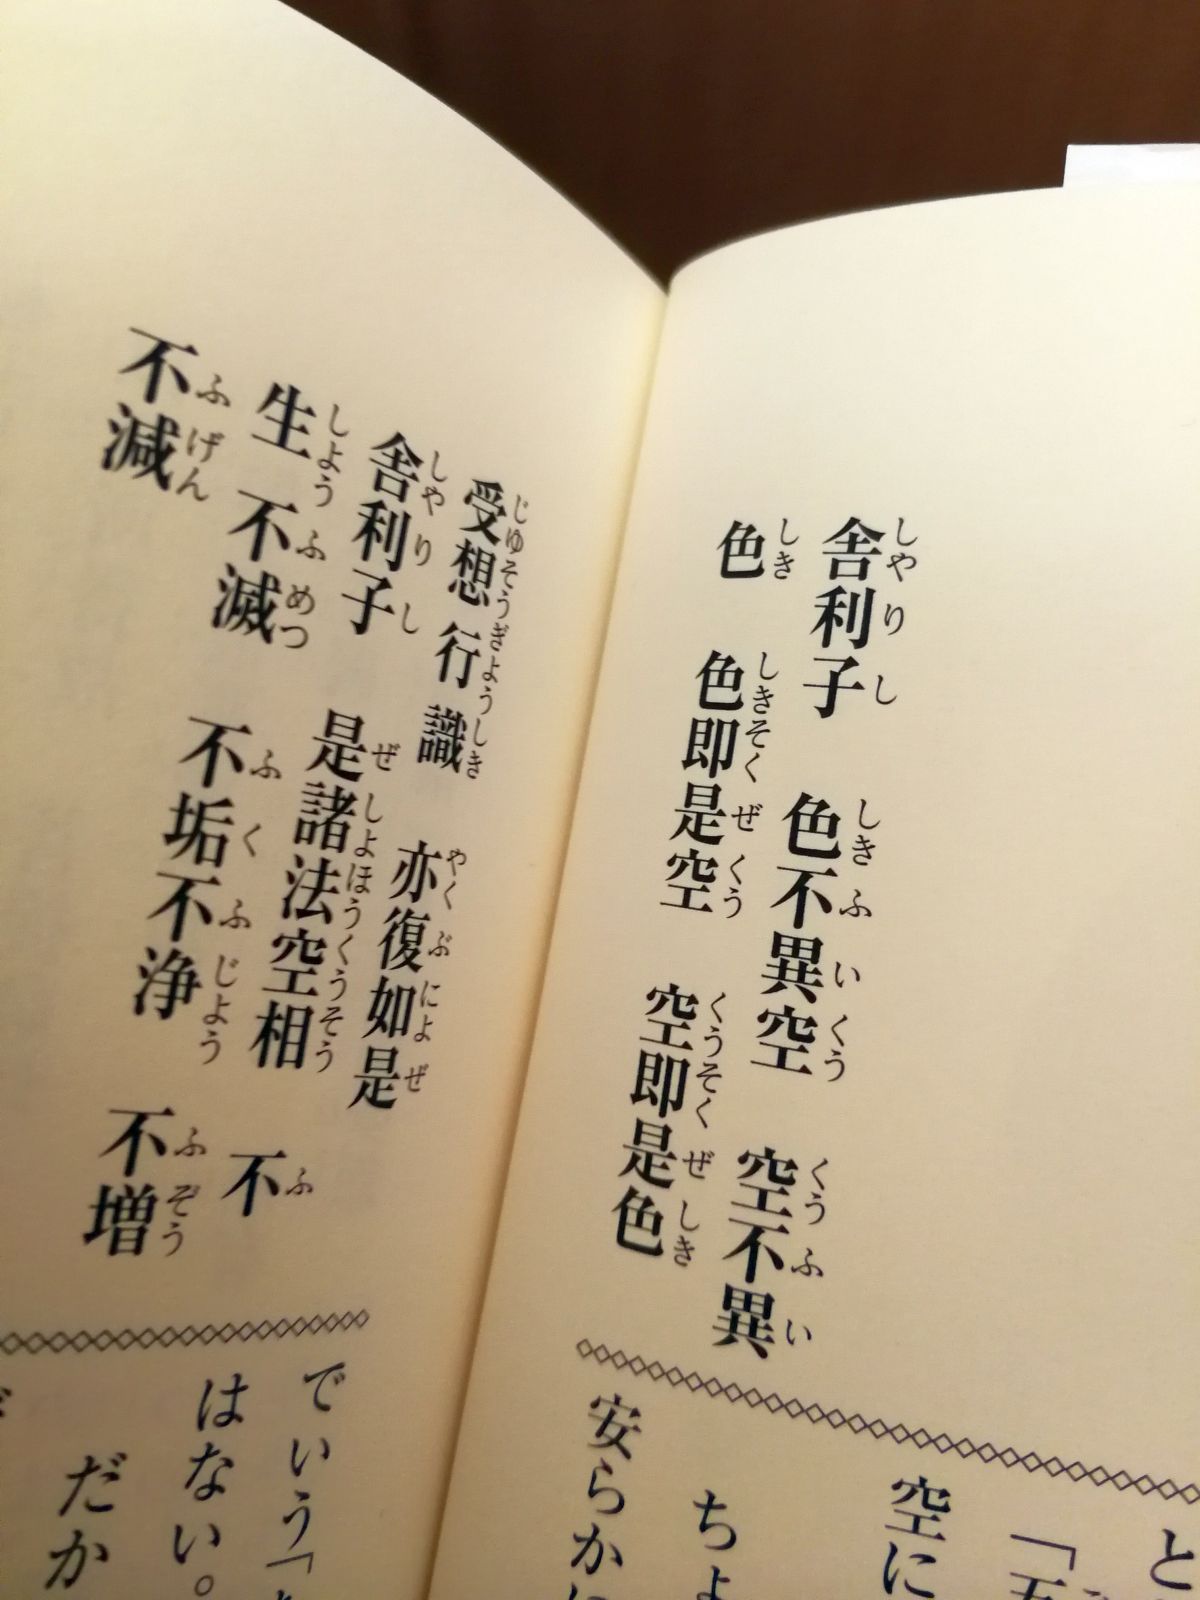 舎利子 色不異空 空不異
色 色即是空 空即是色
受想行識 亦復如是
舎利子 是諸法空相 不
生不滅 不垢不浄 不増
不減
と
「五
空に
ちょ
安らかに
でいう「
はない。
だか